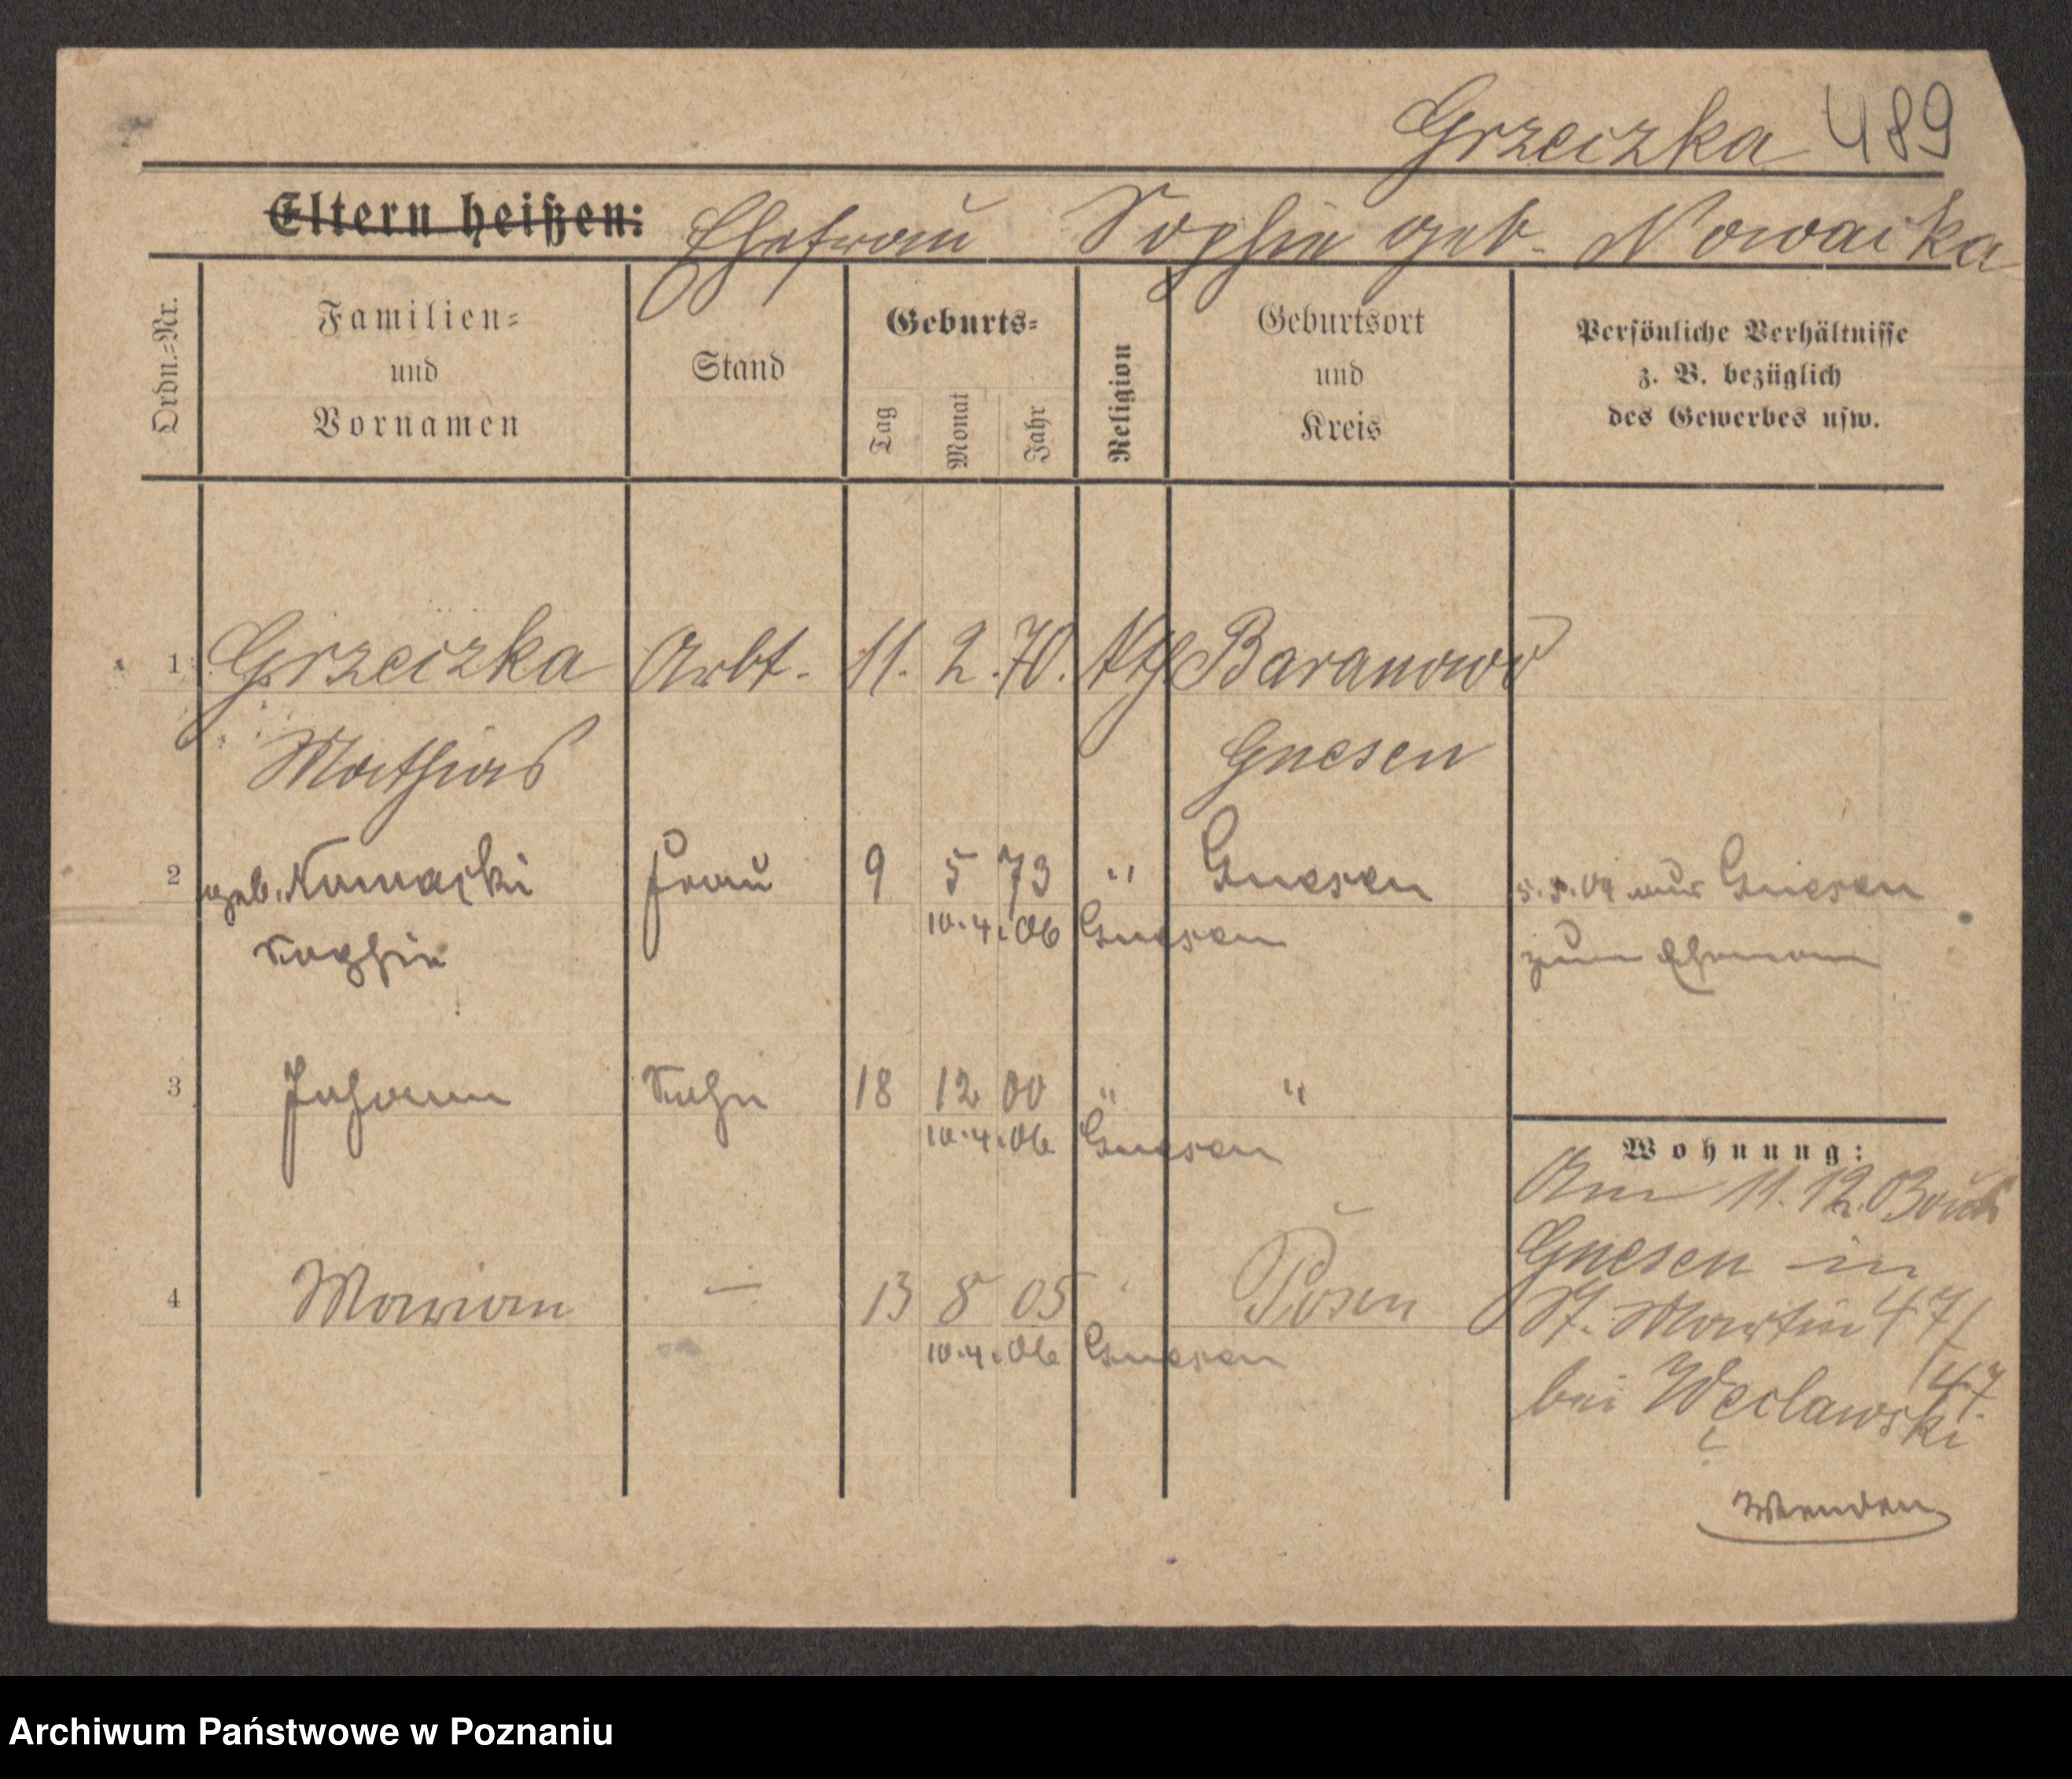 Grzeczka 489
Eltern heißen: Ehefrau Sophie geb. Nowacka
Ordn.=Nr.
Familien=
und
Vornamen
Stand
Geburts=
Tag
Monat
Jahr
Religion
Geburtsort
und
Kreis
Persönliche Verhältnisse
z. B. bezüglich
des Gewerbes usw.
1 Grzeczka Arbt. 11. 2. 70. kth Baranowo
Mathias Gnesen
2 geb. Nowacki Frau 9 5 73 " Gnesen 5. 5. 04 aus Gnesen
10.4.06 Gnesen
Sophie zum Ehemann
3 Johann Sohn 18 12 00 " "
10.4.06 Gnesen
4 Marian — 13 8 05 " Posen
10.4.06 Gnesen
Wohnung:
Am 11.12.03 aus
Gnesen in
St. Martin 47/
47.
bei Węclawski
Wenden
Archiwum Państwowe w Poznaniu